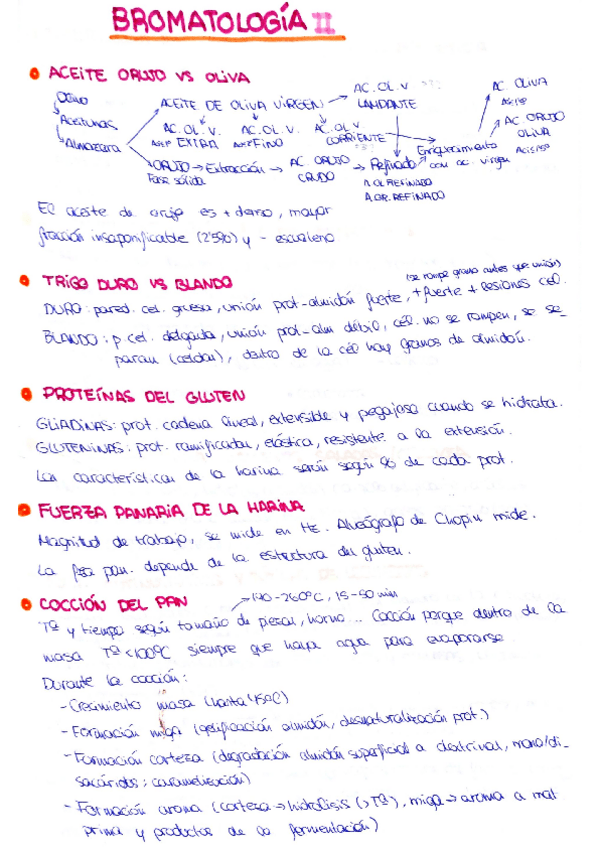 BROMATOLOGÍA II
ACEITE ORUJO VS OLIVA
Olivo
Aceitunas
Almazara
ACEITE DE OLIVA VIRGEN
AC. OL. V. EXTRA
AC. OL. V. FINO
AC. OL. V. CORRIENTE
AC. OL. V LAMPANTE
ORUJO → Extracción → AC. ORUJO CRUDO → Refinado
Fase sólida
A.OL.REFINADO
A.OR.REFINADO
Enriquecimiento con ac. virgen
AC. OLIVA
AC ORUJO OLIVA
El aceite de orujo es + denso, mayor
fracción insaponificable (2'5%) y - escualeno
TRIGO DURO VS BLANDO
(se rompe grano antes que unión)
DURO: pared. cel. gruesa, unión prot-almidón fuerte, + fuerte + lesiones cel.
BLANDO: p. cel. delgada, unión prot-alm débil, cél. no se rompen, se se_
paran (celdas), dentro de la cél hay granos de almidón.
PROTEÍNAS DEL GLUTEN
GLIADINAS: prot. cadena lineal, extensible y pegajosa cuando se hidrata.
GLUTENINAS: prot. ramificadas, elástica, resistente a la extensión.
Las características de la harina serán según % de cada prot.
FUERZA PANARIA DE LA HARINA
Magnitud de trabajo, se mide en Alveógrafo de Chopin mide.
La pan. depende de la estructura del gluten.
COCCIÓN DEL PAN
→ 190-260ºC, 15-50 min
Tª y tiempo según tamaño de piezas, horno... Cocción porque dentro de la
masa Tª <100ºC siempre que haya agua para evaporarse
Durante la cocción:
- Crecimiento masa (hasta 45ºC)
- Formación miga (gelificación almidón, desnaturalización prot.)
- Formación corteza (degradación almidón superficial a dextrinas, mono/di_
sacáridos; caramelización)
- Formación aroma (corteza → hidrólisis (>Tª), miga → aroma a mat
prima y productos de la fermentación)